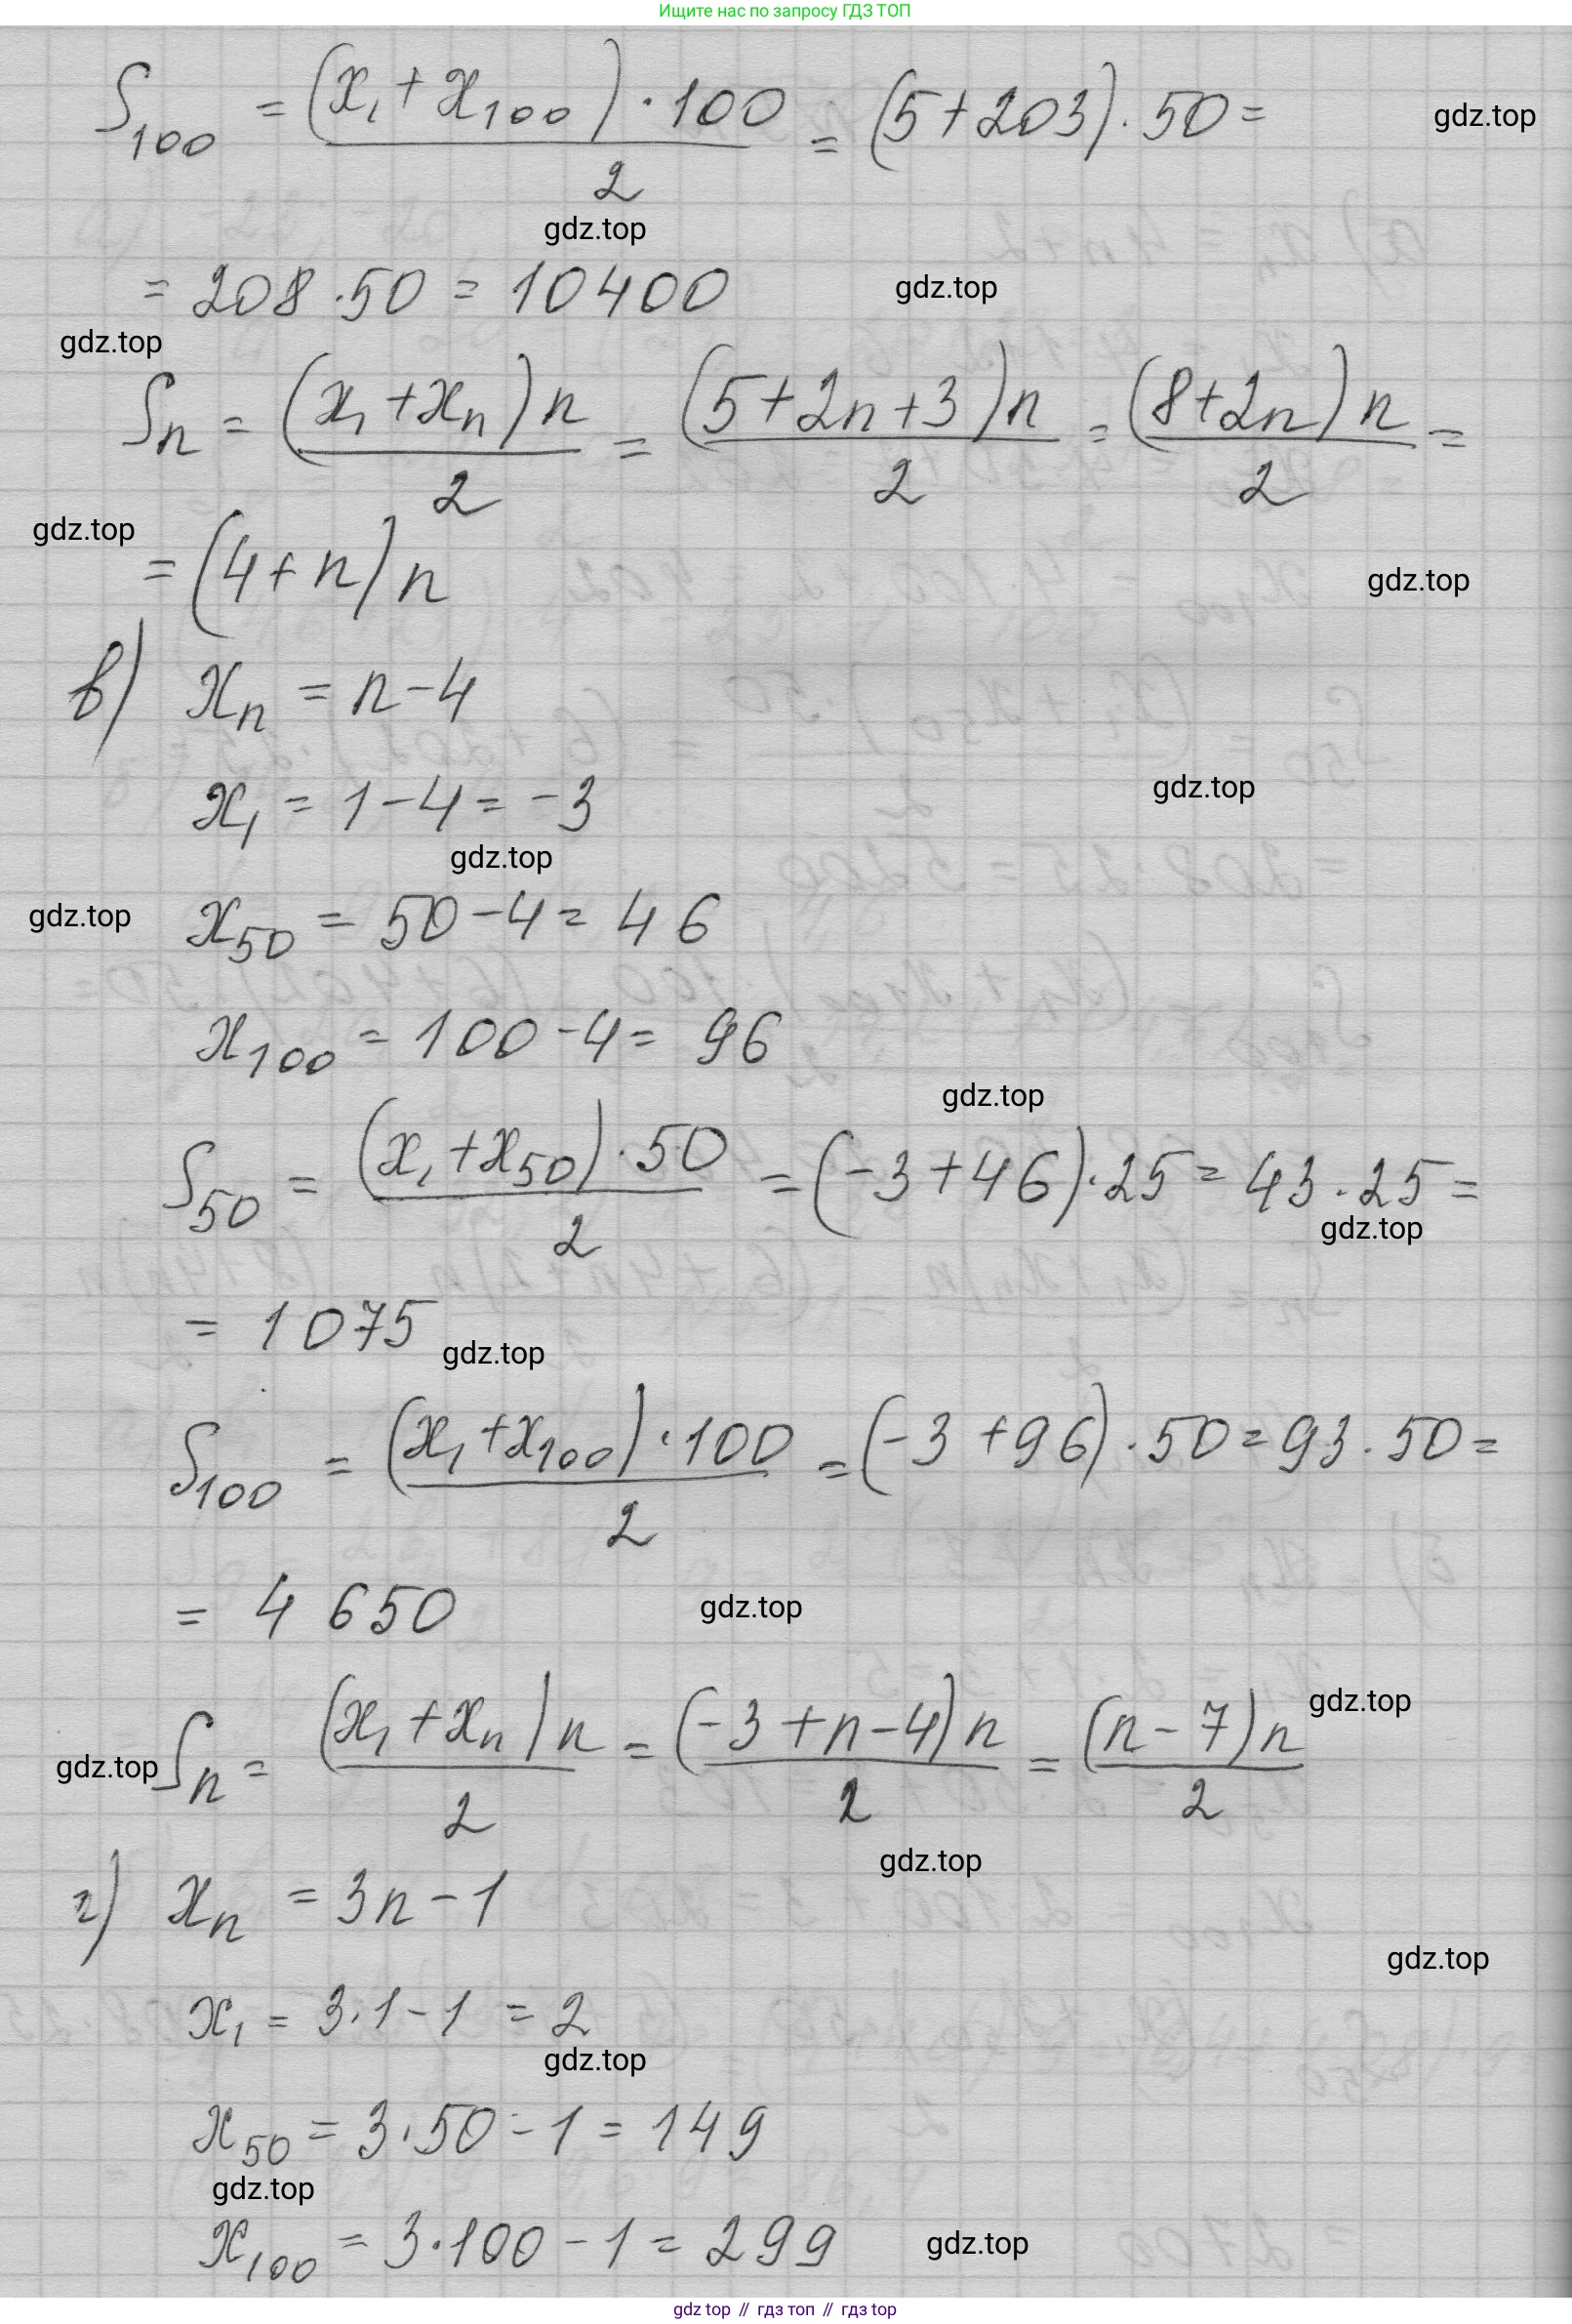 Ищите нас по запросу ГДЗ ТОП
S₁₀₀ = (x₁ + x₁₀₀) · 100 / 2 = (5 + 203) · 50 =
gdz.top
gdz.top
= 208 · 50 = 10400
gdz.top
gdz.top
Sₙ = (x₁ + xₙ) n / 2 = (5 + 2n + 3) n / 2 = (8 + 2n) n / 2 =
gdz.top
= (4 + n) n
gdz.top
в) xₙ = n - 4
x₁ = 1 - 4 = -3
gdz.top
gdz.top
gdz.top
x₅₀ = 50 - 4 = 46
x₁₀₀ = 100 - 4 = 96
gdz.top
S₅₀ = (x₁ + x₅₀) · 50 / 2 = (-3 + 46) · 25 = 43 · 25 =
gdz.top
= 1075
gdz.top
S₁₀₀ = (x₁ + x₁₀₀) · 100 / 2 = (-3 + 96) · 50 = 93 · 50 =
= 4 650
gdz.top
gdz.top
gdz.top
Sₙ = (x₁ + xₙ) n / 2 = (-3 + n - 4) n / 2 = (n - 7) n / 2
gdz.top
г) xₙ = 3n - 1
gdz.top
x₁ = 3 · 1 - 1 = 2
gdz.top
x₅₀ = 3 · 50 - 1 = 149
gdz.top
x₁₀₀ = 3 · 100 - 1 = 299
gdz.top
gdz top // гдз топ // гдз top